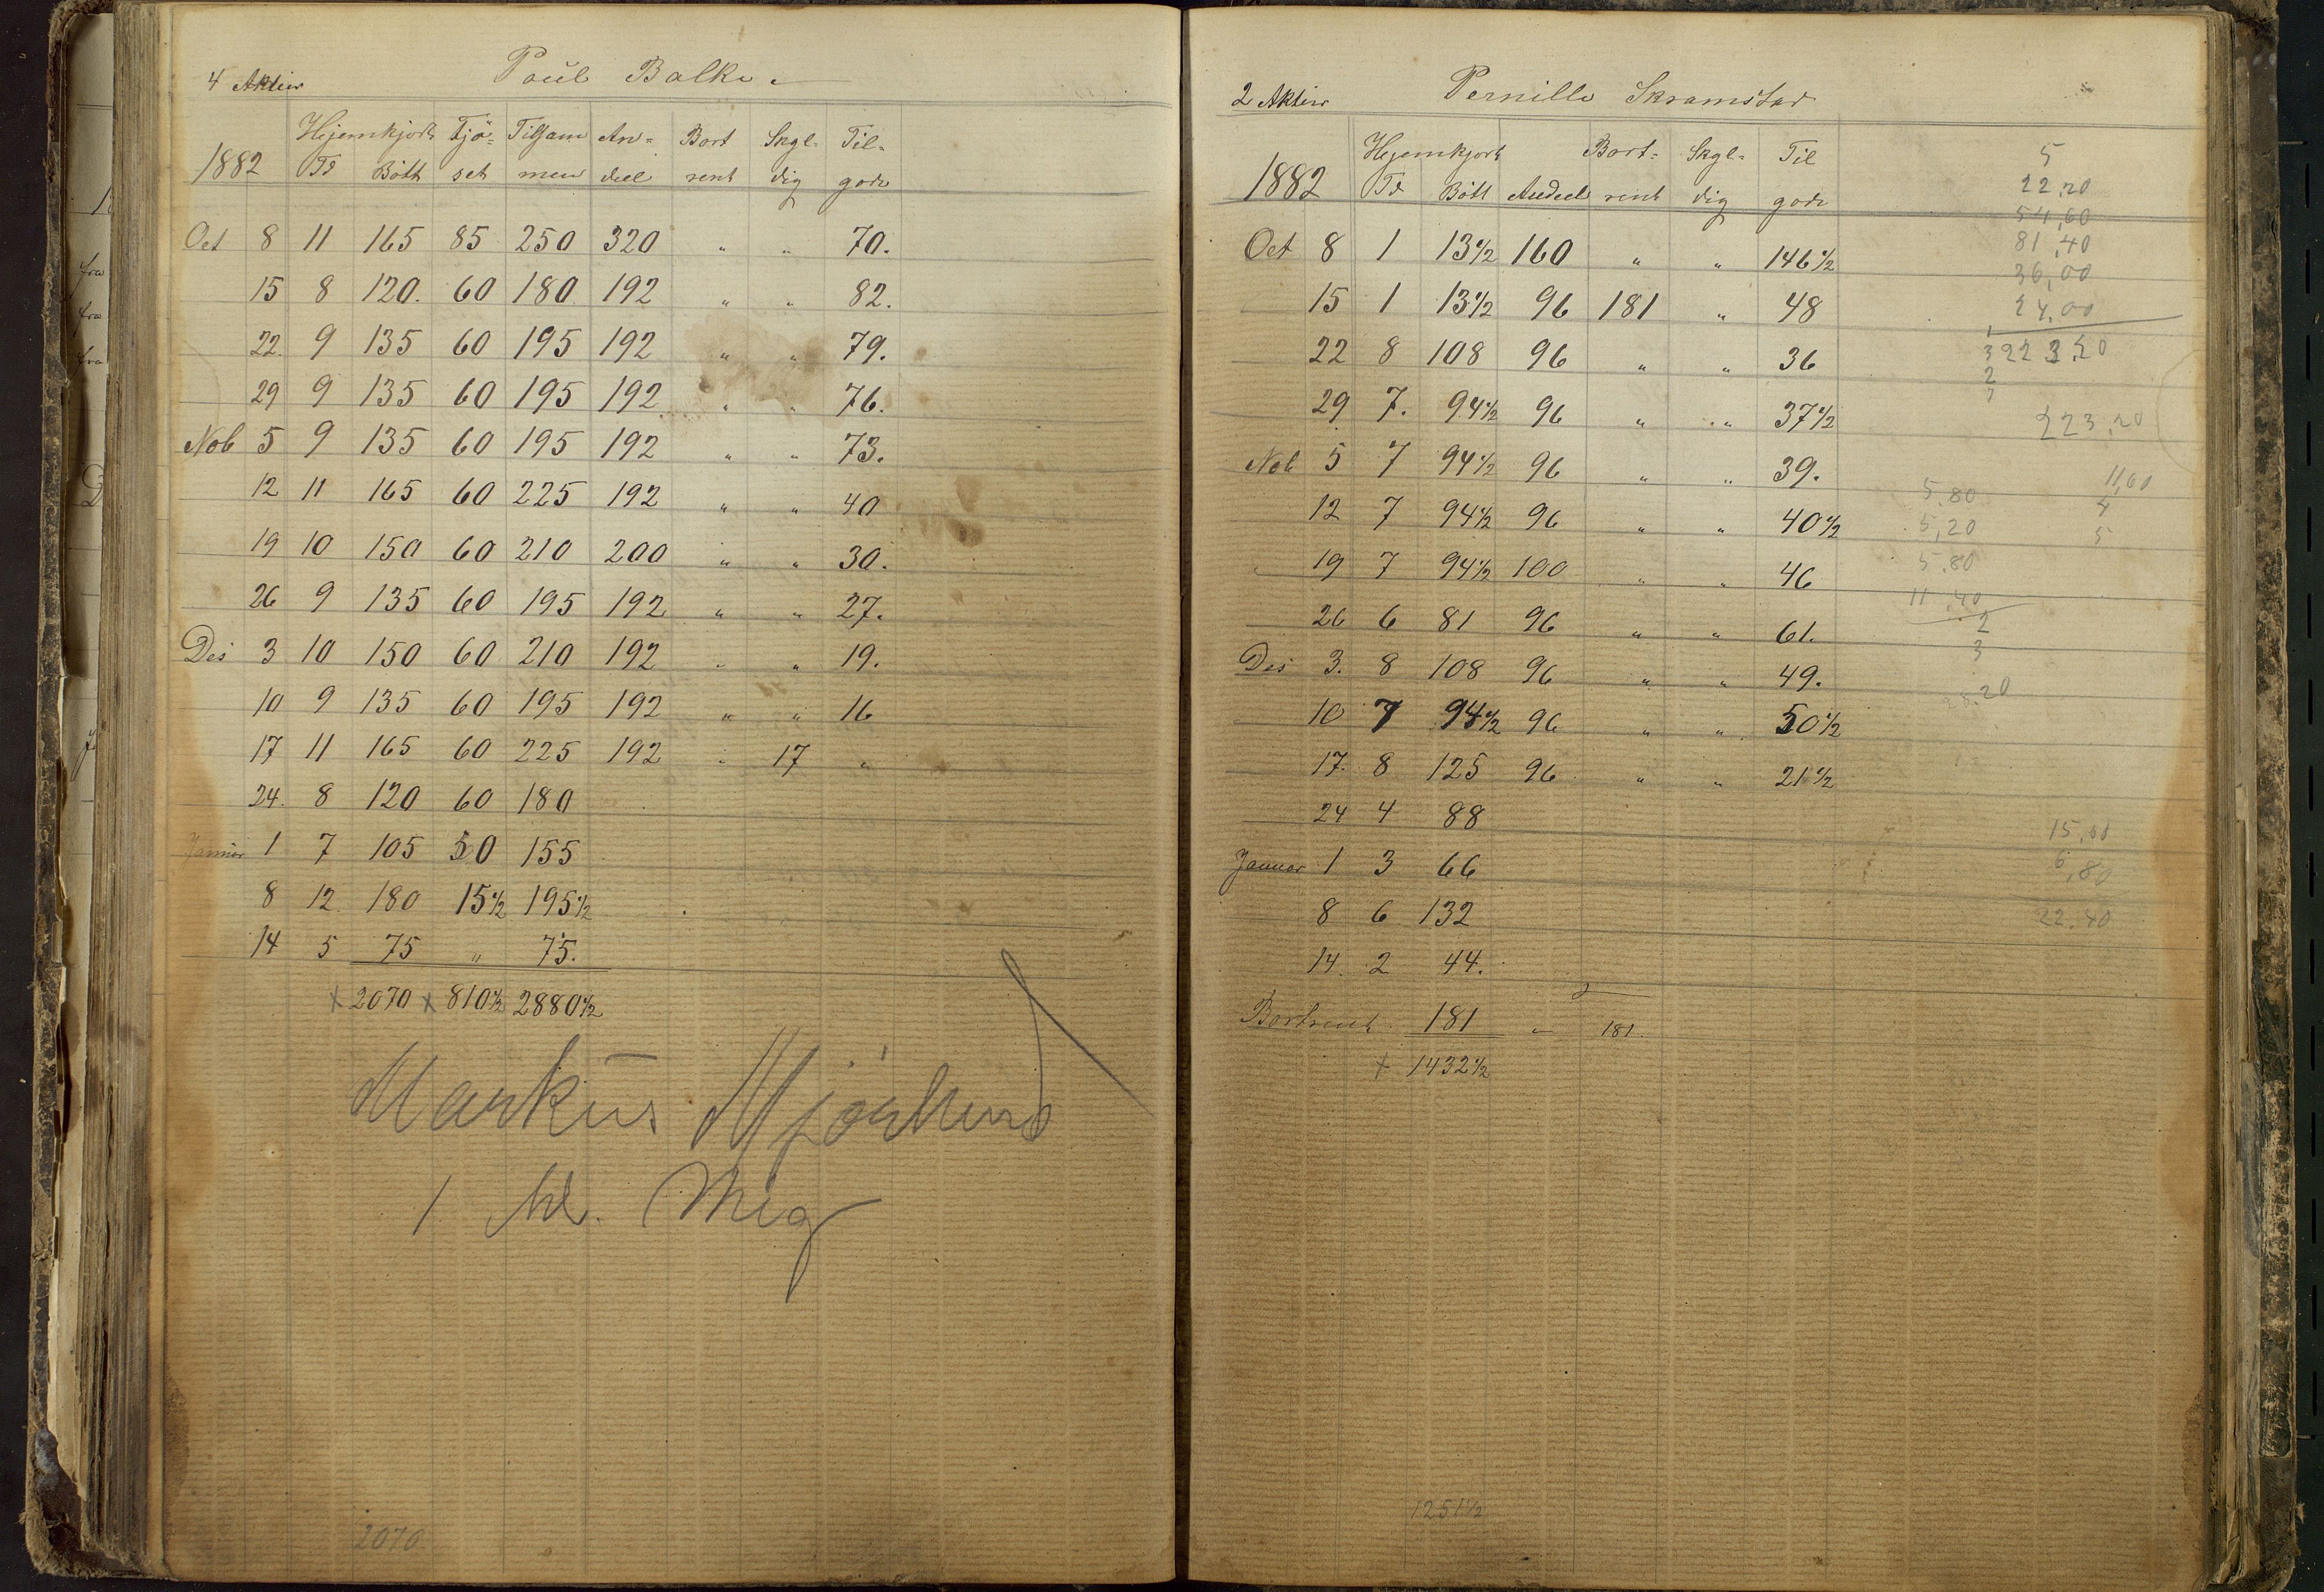 4 Aktier Paul Balke.
Hjemkjørt Tjö= Tilsam An= Bort Skyl= Til=
1882 Td Bött set men deel rent dig gode
Oct 8 11 165 85 250 320 " " 70.
15 8 120. 60 180 192 " " 82.
22. 9 135 60 195 192 " " 79.
29 9 135 60 195 192 " " 76.
Nob 5 9 135 60 195 192 " " 73.
12 11 165 60 225 192 " " 40
19 10 150 60 210 200 " " 30.
26 9 135 60 195 192 " " 27.
Des 3 10 150 60 210 192 " " 19.
10 9 135 60 195 192 " " 16
17 11 165 60 225 192 " 17 "
24. 8 120 60 180
Januar 1 7 105 50 155
8 12 180 15 1/2 195 1/2
14 5 75 " 75.
x 2070 x 810 1/2 2880 1/2
Markus
1 hl. Mig
2070
2 Aktier Pernille Skramstad
Hjemkjørt Bort= Skyl= Til
1882 Td Bött Andeel rent dig gode
Oct 8 1 13 1/2 160 " " 146 1/2
15 1 13 1/2 96 181 " 48
22 8 108 96 " " 36
29 7. 94 1/2 96 " " 37 1/2
Nob 5 7 94 1/2 96 " " 39.
12 7 94 1/2 96 " " 40 1/2
19 7 94 1/2 100 " " 46
26 6 81 96 " " 61.
Des 3. 8 108 96 " " 49.
10 7 94 1/2 96 " " 50 1/2
17. 8 125 96 " " 21 1/2
24 4 88
Januar 1 3 66
8 6 132
14. 2 44.
Bortrent 181 " 181.
x 1432 1/2
1251 1/2
5
22,20
54,60
81,40
36,00
24,00
223,20
223,20
5,80
5,20
5,80
11,40
2
3
28,20
11,60
4
5
15,00
6,80
22,40